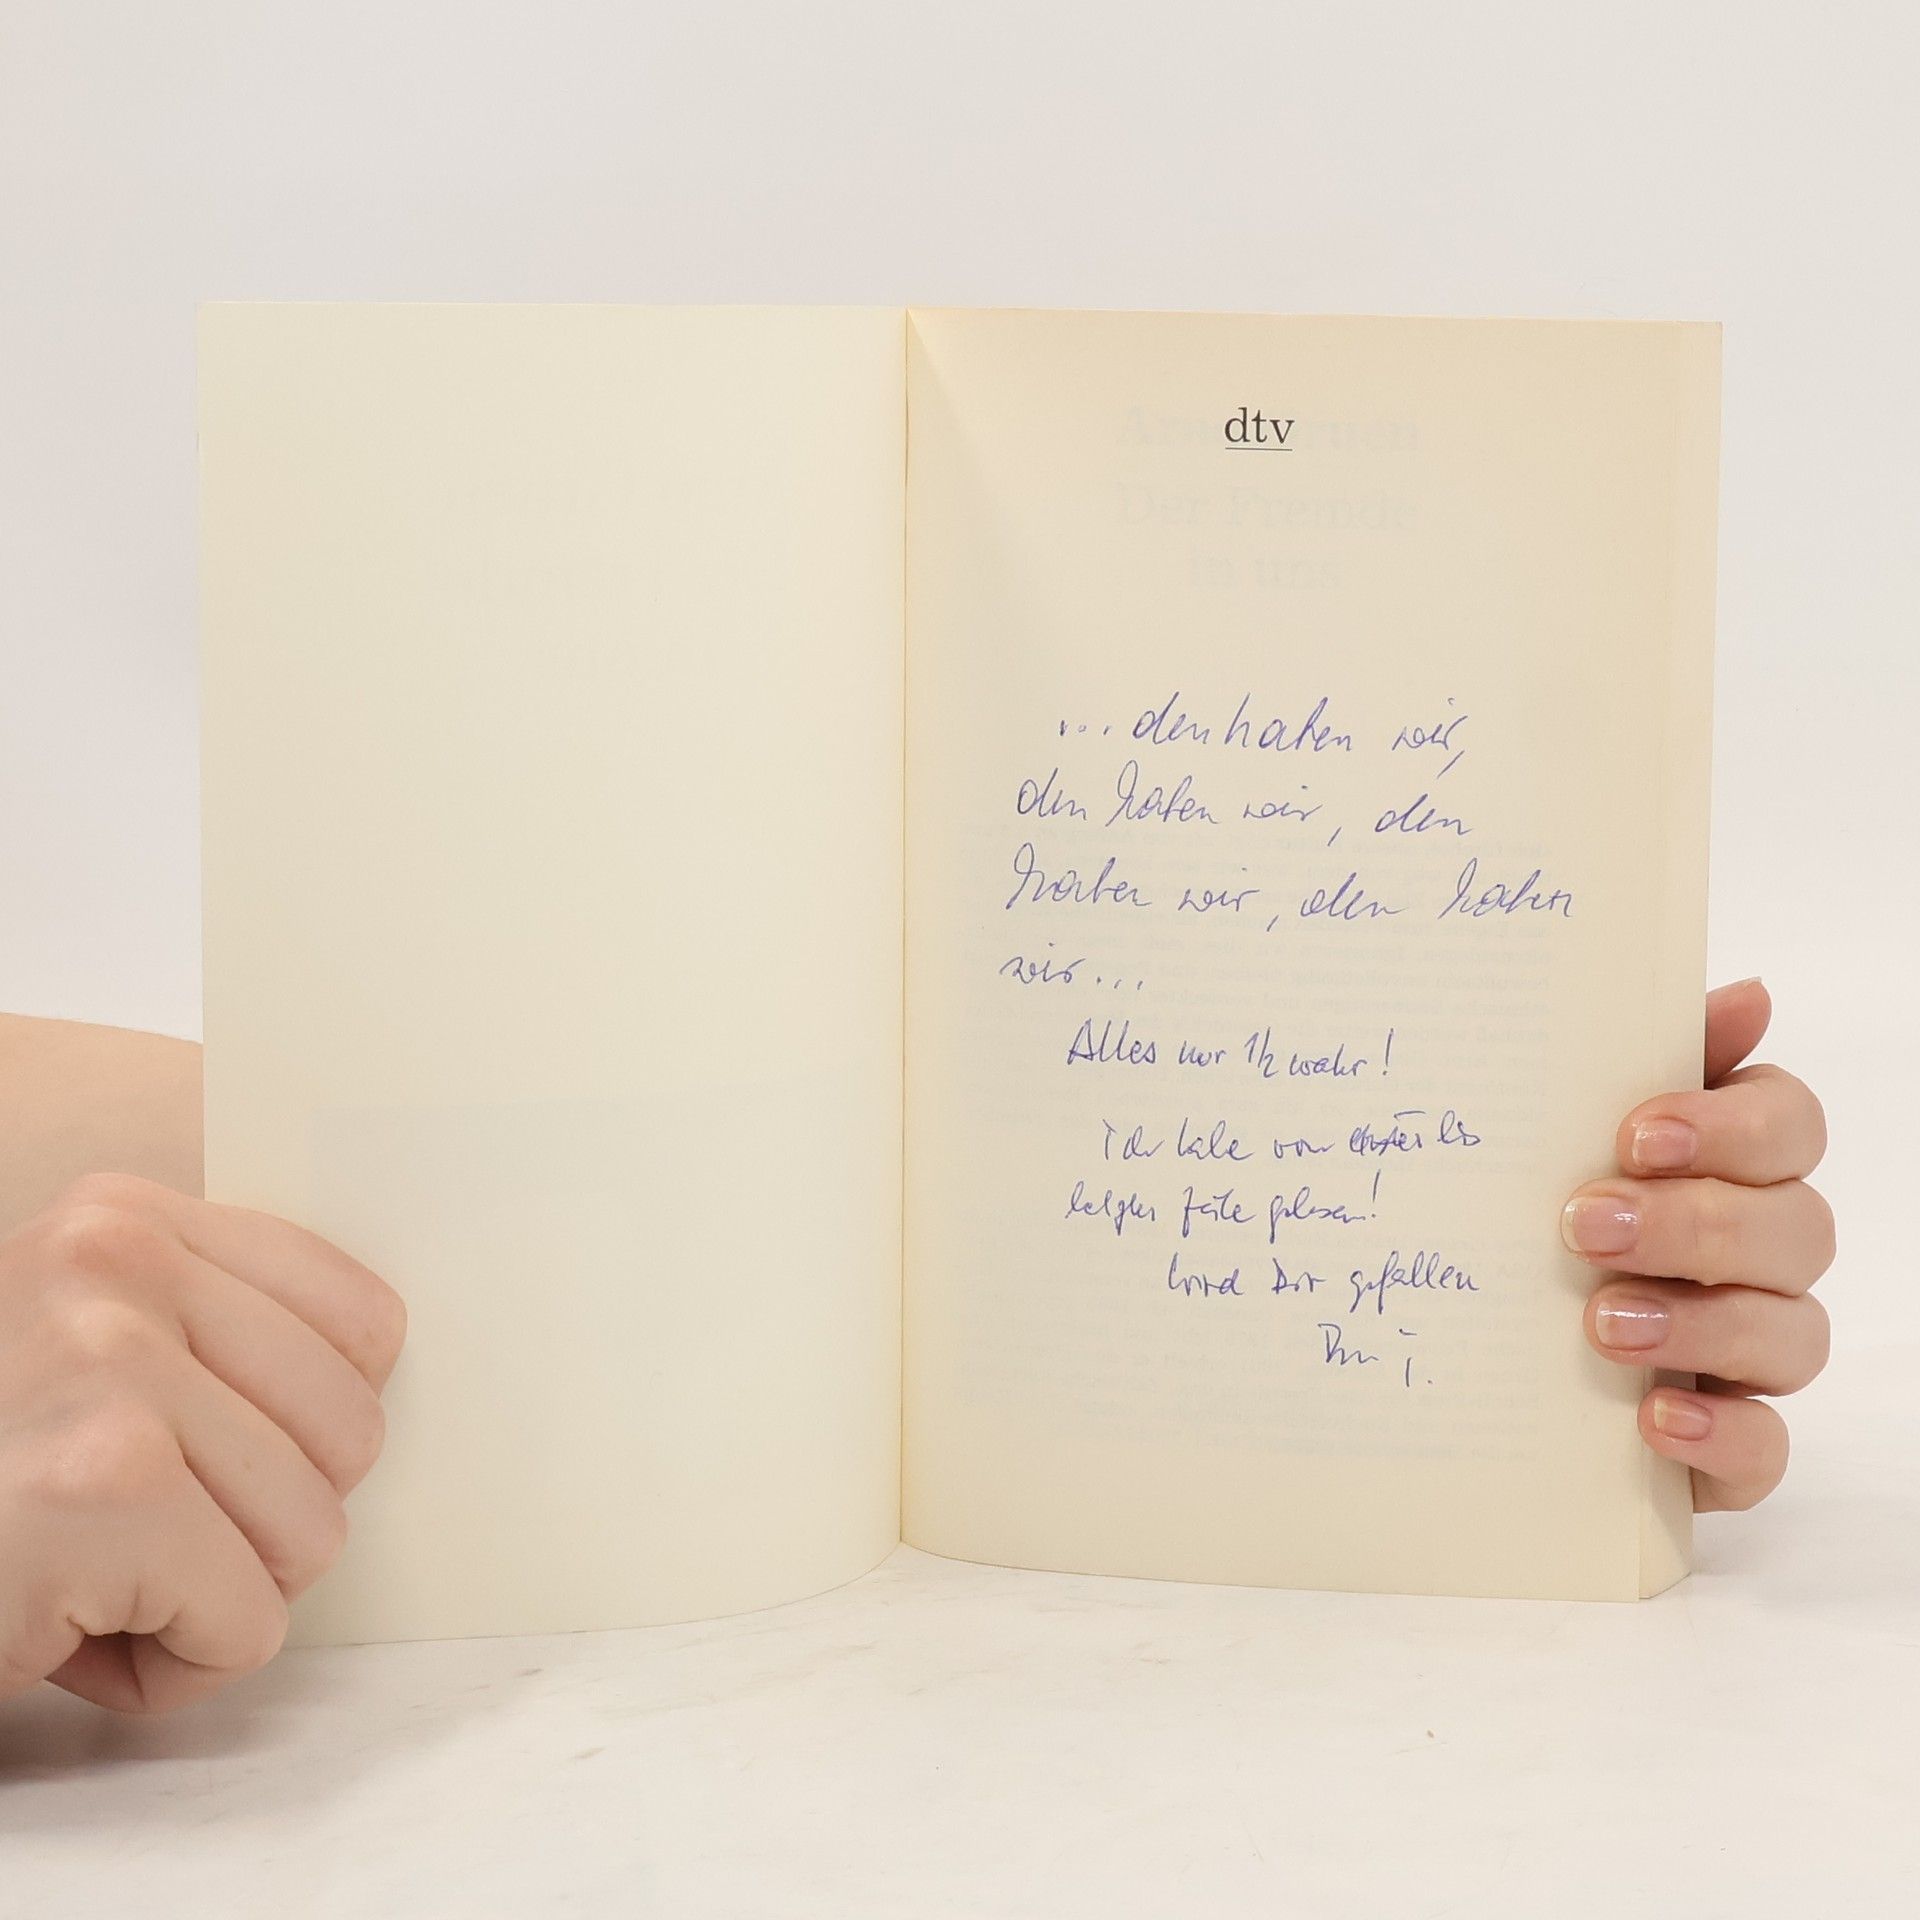 dtv
Der Fremde
in uns
... den haben wir,
den haben wir, den
haben wir, den haben
wir...
Alles nur 1/2 wahr!
Ich habe von erster bis
letzter Zeile gelesen!
Wird Dir gefallen